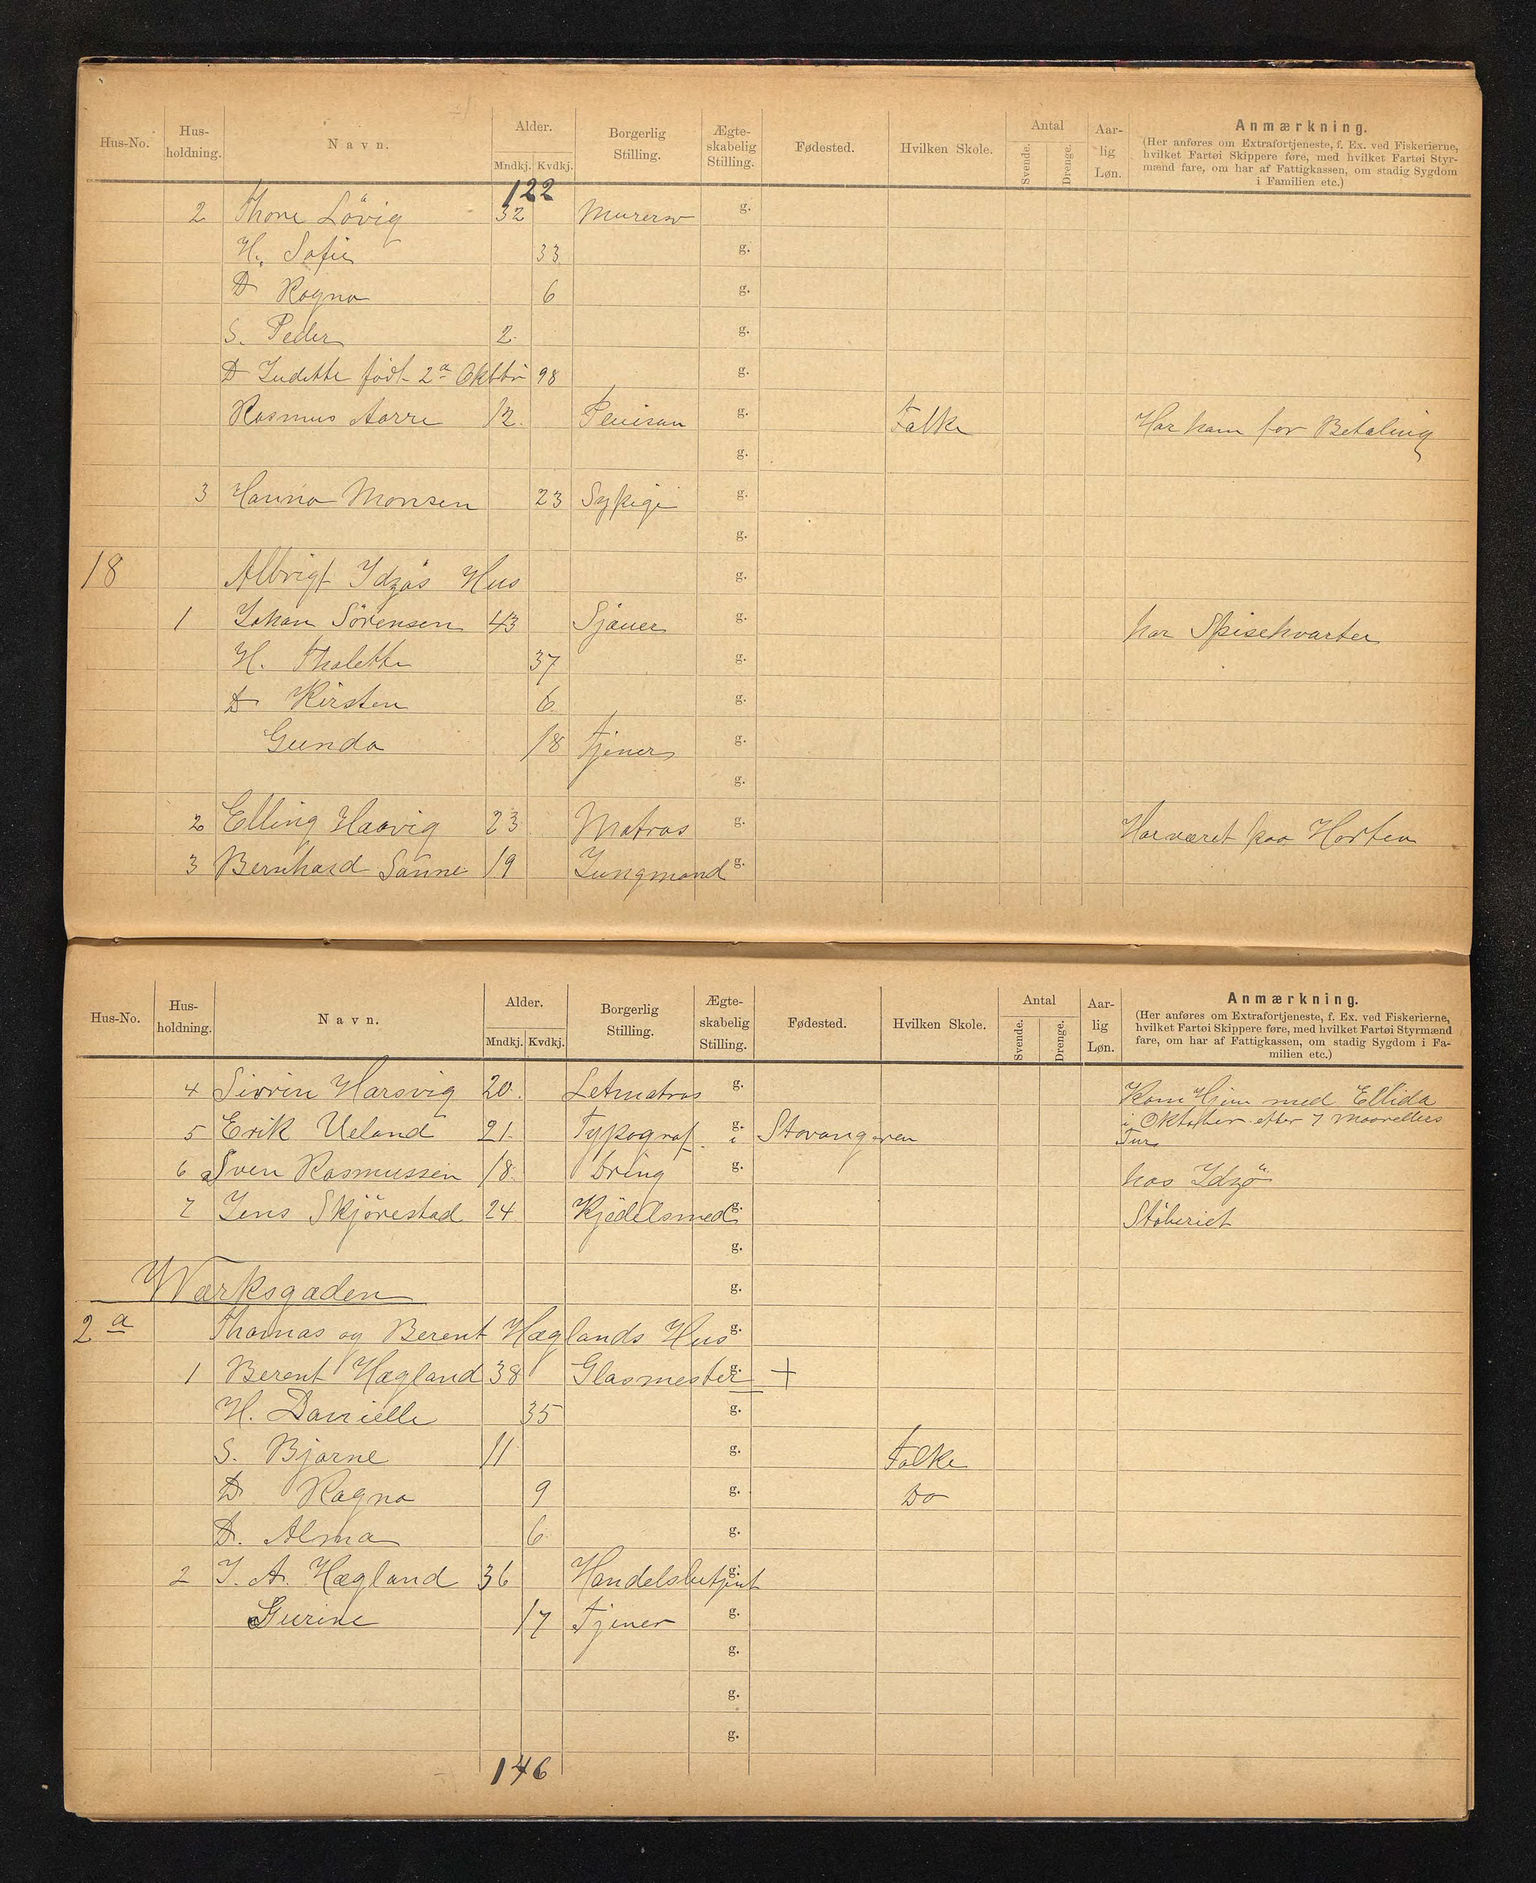 Hus-No. Hus-holdning. Navn. Alder. Mndkj. Kvdkj. Borgerlig Stilling. Ægte-skabelig Stilling. Fødested. Hvilken Skole. Antal Svende. Drenge. Aar-lig Løn. Anmærkning.
(Her anføres om Extrafortjeneste, f. Ex. ved Fiskerierne, hvilket Fartøi Skippere føre, med hvilket Fartøi Styr-mænd fare, om har af Fattigkassen, om stadig Sygdom i Familien etc.)
122
2 Thore Lövig 32 Murersv g.
H. Sofie 33 g.
D Ragna 6 g.
S. Peder 2. g.
D Judette födt 2a Oktbr 98 g.
Rasmus Aarre 12. Pension g. Falke Har ham for Betaling
g.
3 Hanna Monsen 23 Sypige g.
g.
18 Albrigt Idzøs Hus g.
1 Johan Sörensen 43 Sjauer g. har Spisekvarter
H. Thalette 37 g.
D Kirsten 6 g.
Gunda 18 Tjener g.
g.
2 Elling Haavig 23 Matros g. Har været paa Horten
3 Bernhard Sanne 19 Jungmand g.
Hus-No. Hus-holdning. Navn. Alder. Mndkj. Kvdkj. Borgerlig Stilling. Ægte-skabelig Stilling. Fødested. Hvilken Skole. Antal Svende. Drenge. Aar-lig Løn. Anmærkning.
(Her anføres om Extrafortjeneste, f. Ex. ved Fiskerierne, hvilket Fartøi Skippere føre, med hvilket Fartøi Styrmænd fare, om har af Fattigkassen, om stadig Sygdom i Fa-milien etc.)
4 Sivrin Harsvig 20. Letmatros g. Kom Hjem med Ellida
5 Erik Ueland 21. Typograf g. i Stavangeren i Oktober efter 7 Maaneders Tur
6 Sven Rasmussen 18. Dring g. hos Idzø
7 Jens Skjörestad 24 Kjedelsmed g. Stöberiet
g.
Værksgaden g.
2a Thomas og Berent Hæglands Hus g.
1 Berent Hægland 38 Glasmester g. +
H. Danielle 35 g.
S. Bjarne 11 g. Falke
D. Ragna 9 g. Do
D. Alma 6 g.
2 J. A. Hægland 36 Handelsbetjent g.
Gurine 17 Tjener g.
g.
g.
g.
146